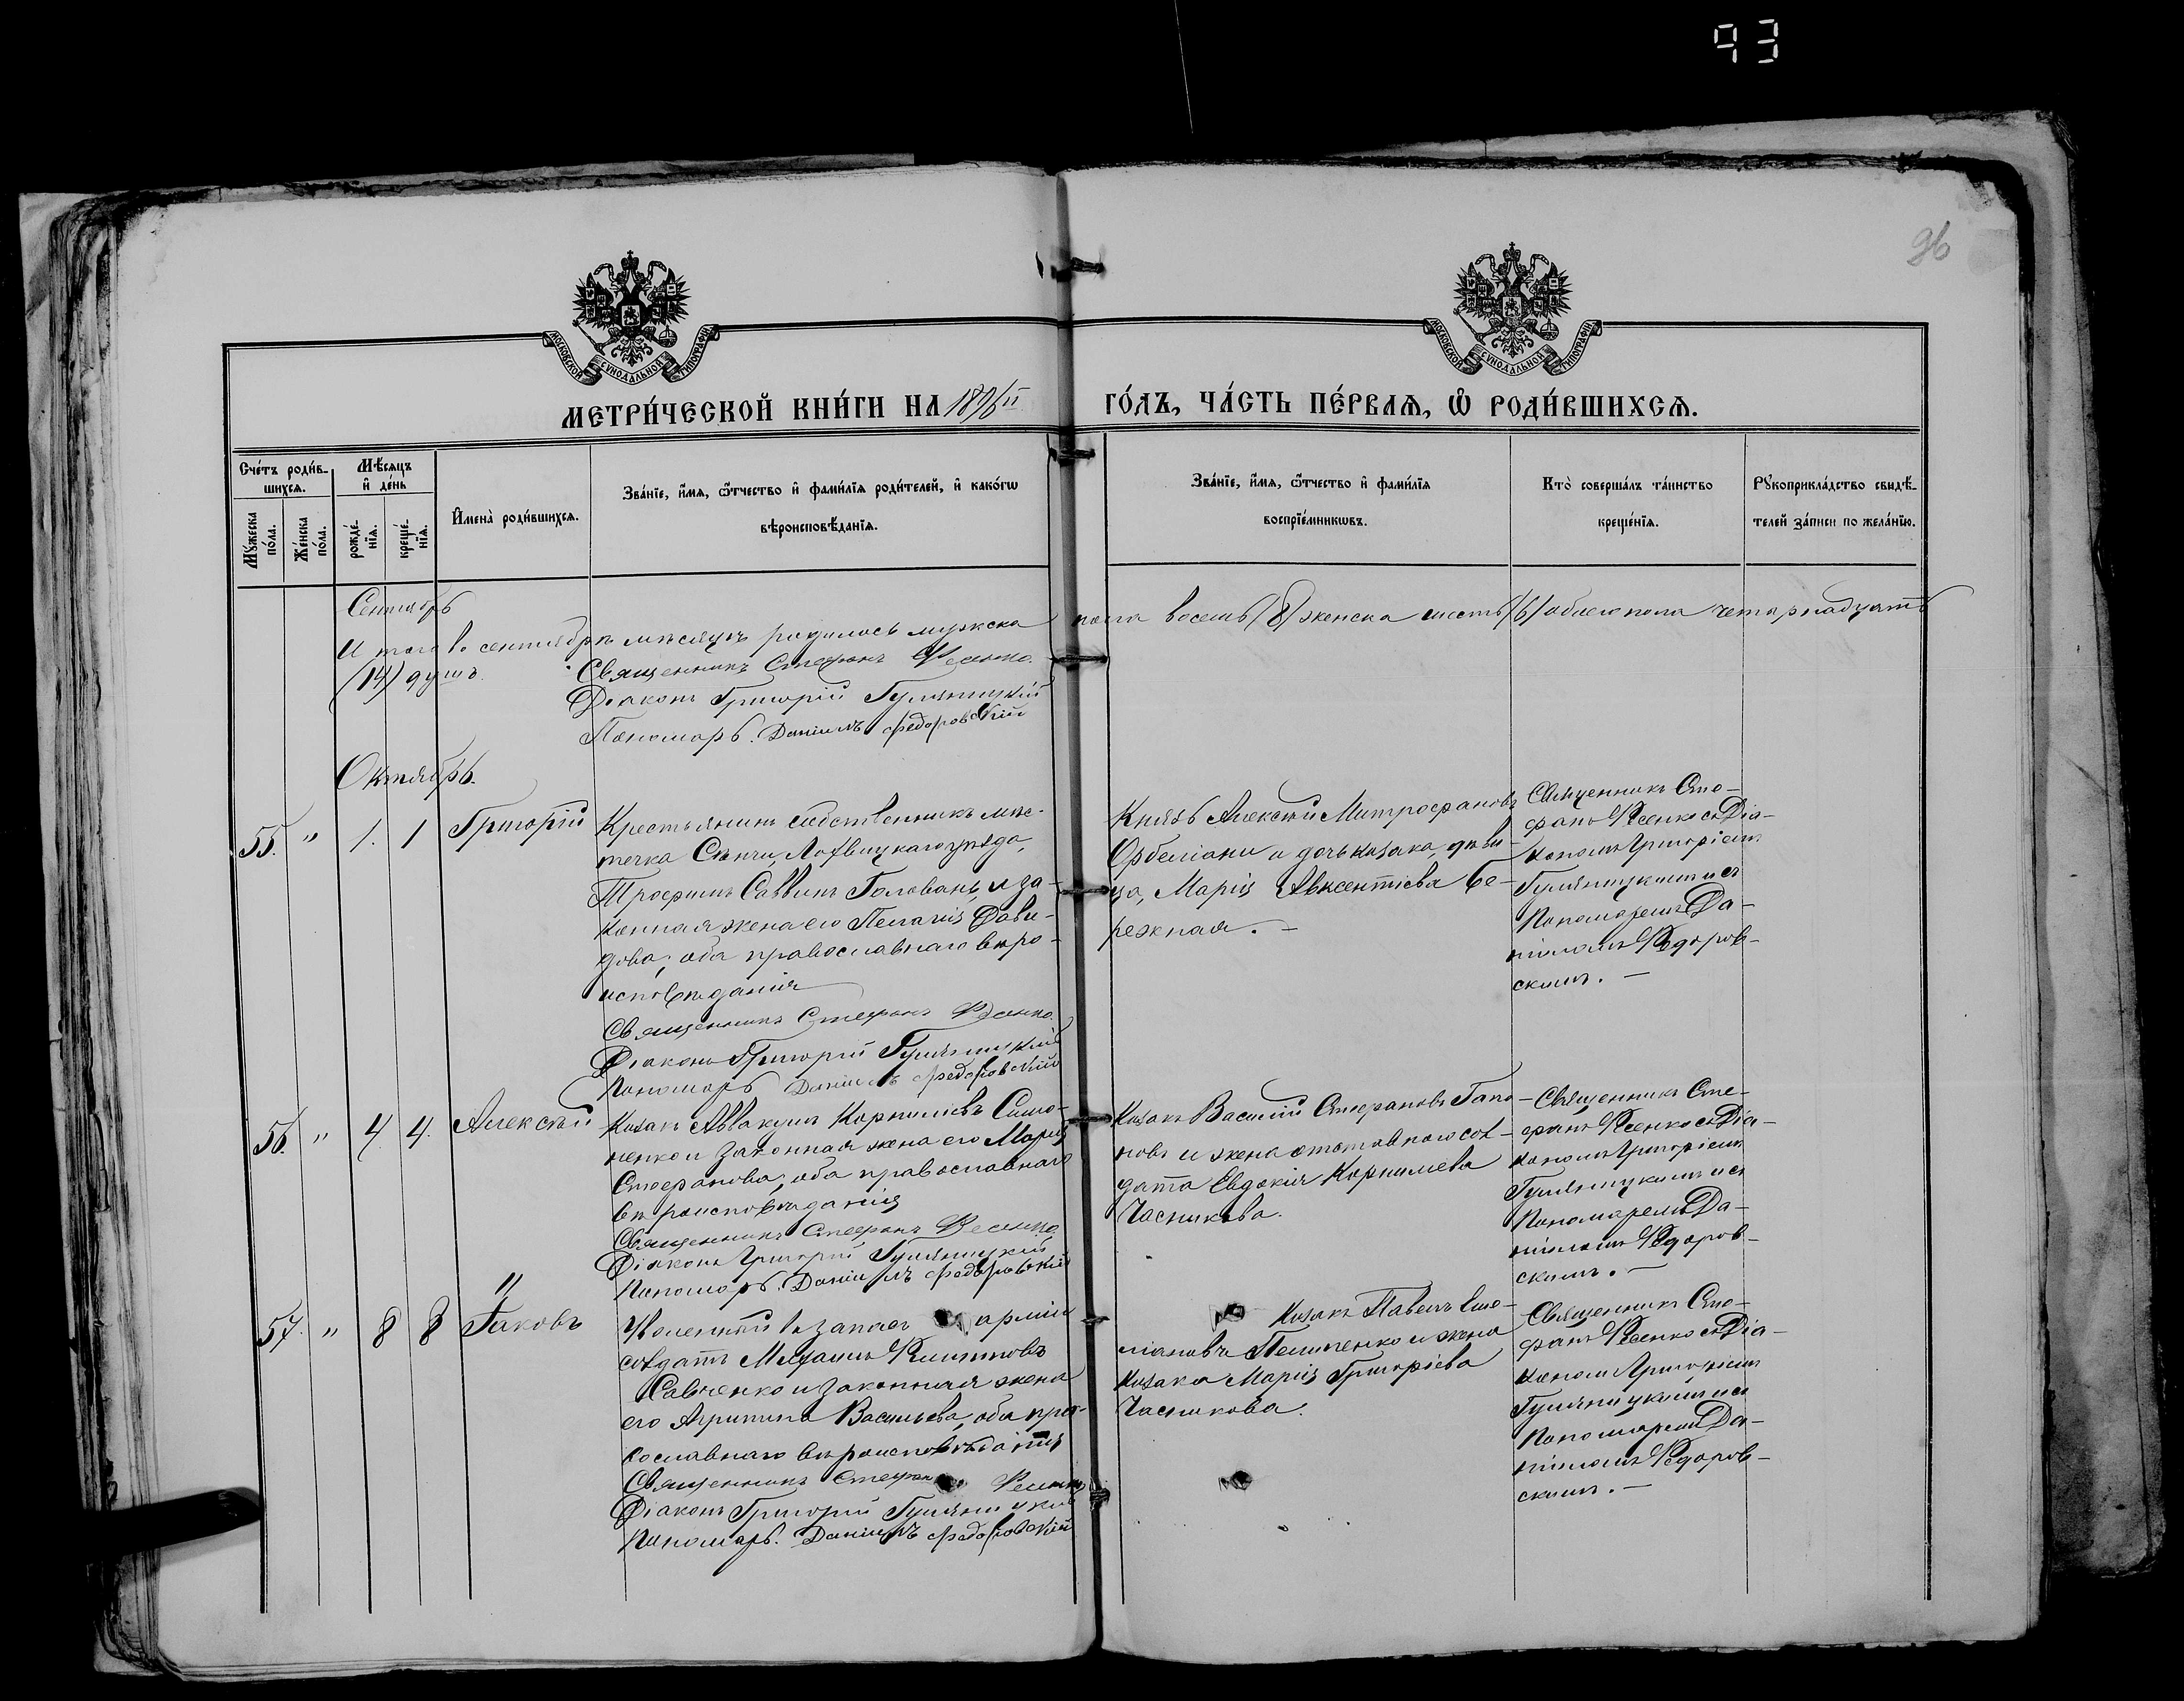 93
96
МОСКОВСКОЙ СѴНОДАЛЬНОЙ ТИПОГРАФІИ
МОСКОВСКОЙ СѴНОДАЛЬНОЙ ТИПОГРАФІИ
МЕТРИ́ЧЕСКОЙ КНИ́ГИ НА 1896 ГО́ДЪ, ЧА́СТЬ ПЕ́РВАѦ, Ѡ҆ РОДИ́ВШИХСѦ.
Сче́тъ роди́в-
шихсѧ.
Мꙋ́жеска
по́ла.
Же́нска
по́ла.
Мѣ́сѧцъ
и҆ де́нь
рожде́-
нїѧ.
креще́-
нїѧ.
И҆мена̀ роди́вшихсѧ.
Зва́нїе, и҆́мѧ, ѻ҆́тчество и҆ фами́лїѧ роди́телей, и҆ како́гѡ
вѣроисповѣ́данїѧ.
Зва́нїе, и҆́мѧ, ѻ҆́тчество и҆ фами́лїѧ
воспрїе́мникѡвъ.
Кто̀ соверша́лъ та́инство
креще́нїѧ.
Рꙋкоприкла́дство свидѣ́-
телей за́писи по жела́нїю.
Сентябрь
Итого въ сентябрѣ мѣсяцѣ родилось мужска пола восемь (8) женска шесть (6) обоего пола четырнадцать
(14) душъ.
Священникъ Стефанъ
Діаконъ Григорій Гуляницкій
Пономарь. Даніилъ Федоровскій
Октябрь.
55. " 1. 1 Григорій
Крестьянинъ собственникъ мѣс-
течка Сѣнчи, Лохвицкаго уѣзда,
Трофимъ Саввинъ Головань, и за-
конная жена его Пелагія Дави-
дова; оба православнаго вѣро-
исповѣданія
Священникъ Стефанъ
Діаконъ Григорій Гуляницкій
Пономарь Даніилъ Федоровскій
Князь Алексѣй Митрофановъ
Орбеліани и дочь козака, дѣви-
ца, Марія Авксентіева Бе-
режная. —
Священникъ Сте-
фанъ съ Діа-
кономъ Григоріемъ
Гуляницкимъ и съ
Пономаремъ Да-
ніиломъ Федоров-
скимъ. —
56. " 4. 4. Алексѣй
Козакъ Аввакумъ Корниліевъ Симо-
ненко и законная жена его Марія
Стефанова; оба православнаго
вѣроисповѣданія
Священникъ Стефанъ
Діаконъ Григорій Гуляницкій
Пономарь. Даніилъ Федоровскій
Козакъ Василій Стефановъ Гапо-
новъ и жена отставного сол-
дата Евдокія Корнилiева
Часникова.
Священникъ Сте-
фанъ съ Діа-
кономъ Григоріемъ
Гуляницкимъ и съ
Пономаремъ Да-
ніиломъ Федоров-
скимъ. —
57. " 8 8 Іаковъ
Уволенный въ запасъ арміи
солдатъ
Савченко и законная жена
его Агрипина Васильева, оба пра-
вославнаго вѣроисповѣданія
Священникъ Стефанъ
Діаконъ Григорій Гуляницкій
Пономарь. Даніилъ Федоровскій
Козакъ Павелъ Еме-
ліановъ Пилипенко и жена
козака Марія Григоріева
Часникова.
Священникъ Сте-
фанъ съ Діа-
кономъ Григоріемъ
Гуляницкимъ и съ
Пономаремъ Да-
ніиломъ Федоров-
скимъ. —